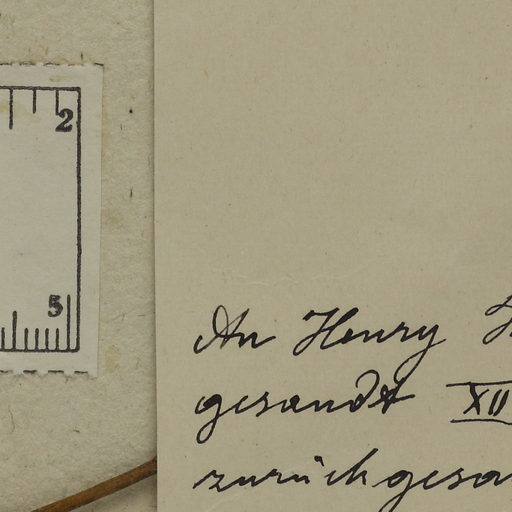 2
5
An Henry
gesandt XII
zurück